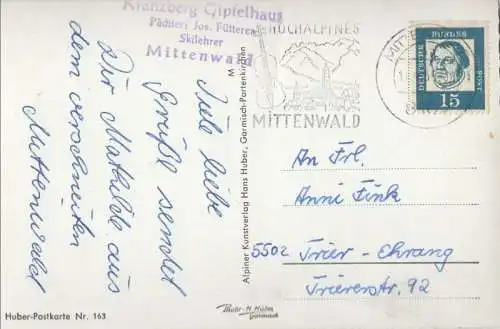 Kranzberg Gipfelhaus
Pächter: Jos. Fütterer
Skilehrer
Mittenwald
HOCHALPINES
MITTENWALD
DEUTSCHE BUNDESPOST
15
Viele liebe
Grüße sendet
Dir Mathilde aus
dem verschneiten
Mittenwald
An Frl.
Anni Fink
5502 Trier-Ehrang
Triererstr. 92
Alpiner Kunstverlag Hans Huber, Garmisch-Partenkirchen
M
Huber-Postkarte Nr. 163
Garmisch